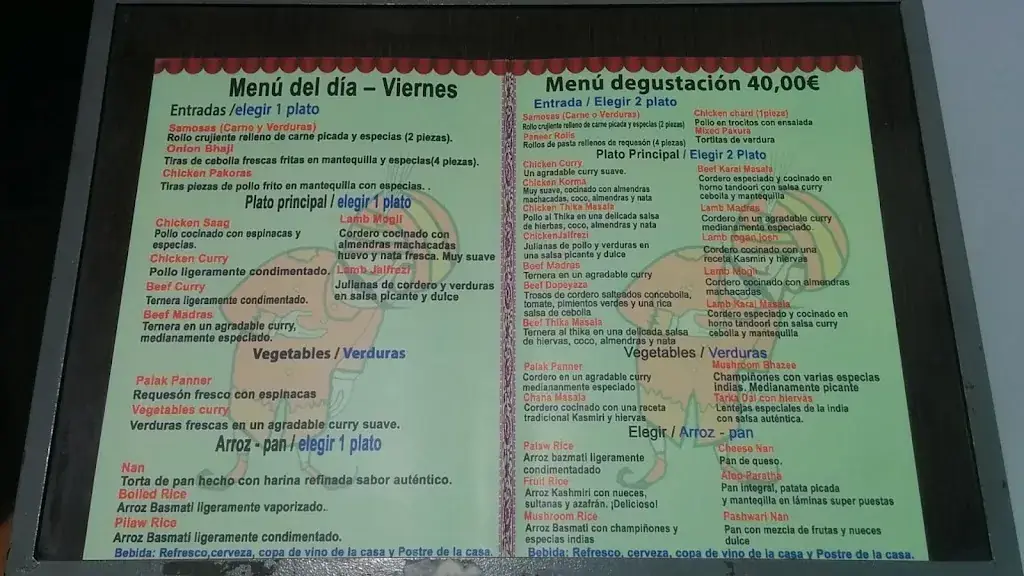 Menú del día – Viernes
Entradas /elegir 1 plato
Samosas (Carne y Verduras)
Rollo crujiente relleno de carne picada y especias (2 piezas).
Onion Bhaji
Tiras de cebolla frescas fritas en mantequilla y especias(4 piezas).
Chicken Pakoras
Tiras piezas de pollo frito en mantequilla con especias. .
Plato principal / elegir 1 plato
Chicken Saag
Pollo cocinado con espinacas y
especias.
Chicken Curry
Pollo ligeramente condimentado.
Beef Curry
Ternera ligeramente condimentado.
Beef Madras
Ternera en un agradable curry,
medianamente especiado.
Lamb Mogli
Cordero cocinado con
almendras machacadas
huevo y nata fresca. Muy suave
Lamb Jalfrezi
Julianas de cordero y verduras
en salsa picante y dulce
Vegetables / Verduras
Palak Panner
Requesón fresco con espinacas
Vegetables curry
Verduras frescas en un agradable curry suave.
Arroz - pan / elegir 1 plato
Nan
Torta de pan hecho con harina refinada sabor auténtico.
Boiled Rice
Arroz Basmati ligeramente vaporizado..
Pilaw Rice
Arroz Basmati ligeramente condimentado.
Bebida: Refresco,cerveza, copa de vino de la casa y Postre de la casa.
Menú degustación 40,00€
Entrada / Elegir 2 plato
Samosas (Carne o Verduras)
Rollo crujiente relleno de carne picada y especias (2 piezas)
Paneer Rolls
Rollos de pasta rellenos de requesón (4 piezas)
Chicken chard (1pieza)
Pollo en trocitos con ensalada
Mixed Pakura
Tortitas de verdura
Plato Principal / Elegir 2 Plato
Chicken Curry
Un agradable curry suave.
Chicken Korma
Muy suave, cocinado con almendras
machacadas, coco, almendras y nata
Chicken Thika Masala
Pollo al Thika en una delicada salsa
de hierbas, coco, almendras y nata
ChickenJalfrezi
Julianas de pollo y verduras en
una salsa picante y dulce
Beef Madras
Ternera en un agradable curry
Beef Dopeyaza
Trosos de cordero salteados concebolla,
tomate, pimientos verdes y una rica
salsa de cebolla
Beef Thika Masala
Ternera al thika en una delicada salsa
de hiervas, coco, almendras y nata
Beef Karai Masala
Cordero especiado y cocinado en
horno tandoori con salsa curry
cebolla y mantequilla
Lamb Madras
Cordero en un agradable curry
medianamente especiado.
Lamb rogan josh
Cordero cocinado con una
receta Kasmiri y hiervas
Lamb Mogli
Cordero cocinado con almendras
machacadas
Lamb Karai Masala
Cordero especiado y cocinado en
horno tandoori con salsa curry
cebolla y mantequilla
Vegetables / Verduras
Palak Panner
Cordero en un agradable curry
medianamente especiado
Chana Masala
Cordero cocinado con una receta
tradicional Kasmiri y hiervas
Mushroom Bhazee
Champiñones con varias especias
indias. Medianamente picante
Tarka Dal con hiervas
Lentejas especiales de la india
con salsa auténtica.
Elegir / Arroz - pan
Palaw Rice
Arroz bazmati ligeramente
condimentadado
Fruit Rice
Arroz Kashmiri con nueces,
sultanas y azafrán. ¡Delicioso!
Mushroom Rice
Arroz Basmati con champiñones y
especias indias
Cheese Nan
Pan de queso.
Aloo Paratha
Pan integral, patata picada
y manteqila en láminas super puestas
Pashwari Nan
Pan con mezcla de frutas y nueces
dulce
Bebida: Refresco, cerveza, copa de vino de la casa y Postre de la casa.